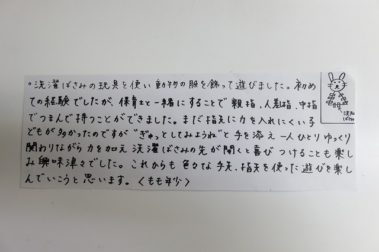 。洗濯ばさみの玩具を使い動物の服を飾って遊びました。初め
ての経験でしたが、保育士と一緒にすることで親指、人差指、中指
でつまんで持つことができました。まだ指先に力を入れにくい子
どもが多かったのですが“ぎゅっとしてみようね”と手を添え一人ひとりゆっくり
関わりながら力を加え洗濯ばさみの先が開くと喜びつけることも楽し
み興味津々でした。これからも色々な手先、指先を使った遊びを楽し
んでいこうと思います。〈もも年少〉